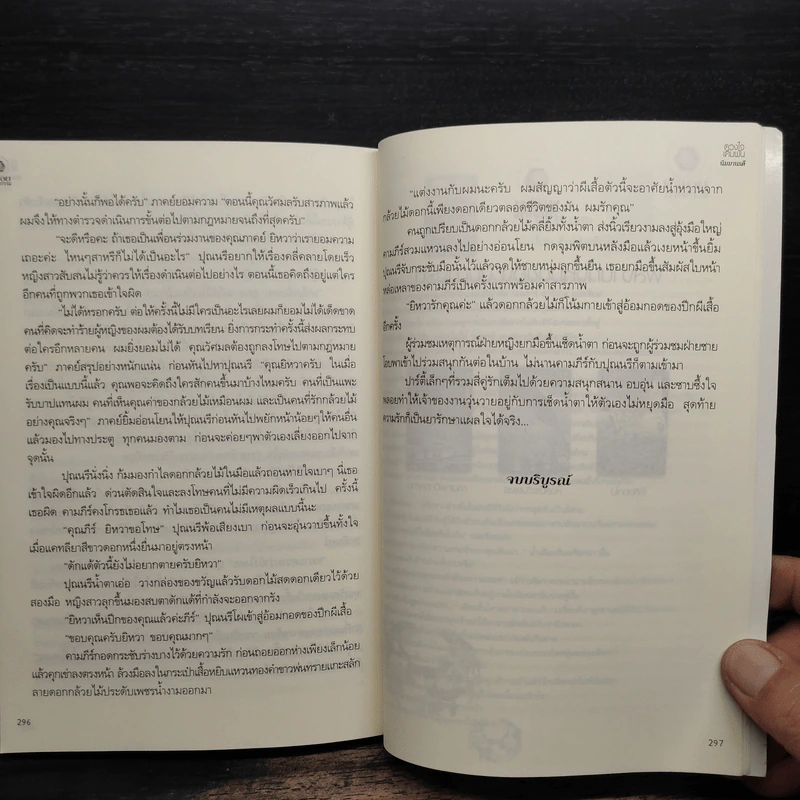 "อย่างนั้นก็พอได้ครับ" ภาคย์ยอมความ "ตอนนี้คุณวัศมลรับสารภาพแล้ว
ผมจึงให้ทางตำรวจดำเนินการขั้นต่อไปตามกฎหมายจนถึงที่สุดครับ"
"จะดีหรือคะ ถ้าเธอเป็นเพื่อนร่วมงานของคุณภาคย์ ยิหวาว่าเรายอมความ
เถอะค่ะ ไหนๆสาหรีก็ไม่ได้เป็นอะไร" ปุณนรีอยากให้เรื่องคลี่คลายโดยเร็ว
หญิงสาวสับสนไม่รู้ว่าควรให้เรื่องดำเนินต่อไปอย่างไร ตอนนี้เธอคิดถึงอยู่แต่ใคร
อีกคนที่ถูกพวกเธอเข้าใจผิด
"ไม่ได้หรอกครับ ต่อให้ครั้งนี้ไม่มีใครเป็นอะไรเลยผมก็ยอมไม่ได้เด็ดขาด
คนที่คิดจะทำร้ายผู้หญิงของผมต้องได้รับบทเรียน ยิ่งการกระทำครั้งนี้ส่งผลกระทบ
ต่อใครอีกหลายคน ผมยิ่งยอมไม่ได้ คุณวัศมลต้องถูกลงโทษไปตามกฎหมาย
ครับ" ภาคย์สรุปอย่างหนักแน่น ก่อนหันไปหาปุณนรี "คุณยิหวาครับ ในเมื่อ
เรื่องเป็นแบบนี้แล้ว คุณพอจะคิดถึงใครสักคนขึ้นมาบ้างไหมครับ คนที่เป็นแพะ
รับบาปแทนผม คนที่เห็นคุณค่าของกล้วยไม้เหมือนผม และเป็นคนที่รักกล้วยไม้
อย่างคุณจริงๆ" ภาคย์ยิ้มอ่อนโยนให้ปุณนรีก่อนหันไปพยักหน้าน้อยๆให้คนอื่น
แล้วมองไปทางประตู ทุกคนมองตาม ก่อนจะค่อยๆพาตัวเองเลี่ยงออกไปจาก
จุดนั้น
ปุณนรีนั่งนิ่ง ก้มมองกำไลดอกกล้วยไม้ในมือแล้วถอนหายใจเบาๆ นี่เธอ
เข้าใจผิดอีกแล้ว ด่วนตัดสินใจและลงโทษคนที่ไม่มีความผิดเร็วเกินไป ครั้งนี้
เธอผิด คามภีร์คงโกรธเธอแล้ว ทำไมเธอเป็นคนไม่มีเหตุผลแบบนี้นะ
"คุณภีร์ ยิหวาขอโทษ" ปุณนรีพ้อเสียงเบา ก่อนจะอุ่นวาบขึ้นทั้งใจ
เมื่อแคทลียาสีขาวดอกหนึ่งยื่นมาอยู่ตรงหน้า
"ดักแด้ตัวนี้ยังไม่อยากตายครับยิหวา"
ปุณนรีน้ำตาเอ่อ วางกล่องของขวัญแล้วรับดอกไม้สดดอกเดียวไว้ด้วย
สองมือ หญิงสาวลุกขึ้นมองสบตาดักแด้ที่กำลังจะออกจากรัง
"ยิหวาเห็นปีกของคุณแล้วค่ะภีร์" ปุณนรีโผเข้าสู่อ้อมกอดของปีกผีเสื้อ
"ขอบคุณครับยิหวา ขอบคุณมากๆ"
คามภีร์กอดกระชับร่างบางไว้ด้วยความรัก ก่อนถอยออกห่างเพียงเล็กน้อย
แล้วคุกเข่าลงตรงหน้า ล้วงมือลงในกระเป๋าเสื้อหยิบแหวนทองคำขาวพ่นทรายแกะสลัก
ลายดอกกล้วยไม้ประดับเพชรน้ำงามออกมา
296
ดวงใจ
เคมพันธุ์
นัยนามงคลี
"แต่งงานกับผมนะครับ ผมสัญญาว่าผีเสื้อตัวนี้จะอาศัยน้ำหวานจาก
กล้วยไม้ดอกนี้เพียงดอกเดียวตลอดชีวิตของมัน ผมรักคุณ"
คนถูกเปรียบเป็นดอกกล้วยไม้คลี่ยิ้มทั้งน้ำตา ส่งนิ้วเรียวงามลงสู่อุ้งมือใหญ่
คามภีร์สวมแหวนลงไปอย่างอ่อนโยน กดจุมพิตบนหลังมือแล้วเงยหน้าขึ้นยิ้ม
ปุณนรีจับกระชับมือนั้นไว้แล้วฉุดให้ชายหนุ่มลุกขึ้นยืน เธอยกมือขึ้นสัมผัสใบหน้า
หล่อเหลาของคามภีร์เป็นครั้งแรกพร้อมคำสารภาพ
"ยิหวารักคุณค่ะ" แล้วดอกกล้วยไม้ก็โน้มกายเข้าสู่อ้อมกอดของปีกผีเสื้อ
อีกครั้ง
ผู้ร่วมชมเหตุการณ์ฝ่ายหญิงยกมือขึ้นเช็ดน้ำตา ก่อนจะถูกผู้ร่วมชมฝ่ายชาย
โอบพาเข้าไปร่วมสนุกกันต่อในบ้าน ไม่นานคามภีร์กับปุณนรีก็ตามเข้ามา
ปาร์ตี้เล็กๆที่รวมสี่คู่รักเต็มไปด้วยความสนุกสนาน อบอุ่น และซาบซึ้งใจ
พลอยทำให้เจ้าของงานวุ่นวายอยู่กับการเช็ดน้ำตาให้ตัวเองไม่หยุดมือ สุดท้าย
ความรักก็เป็นยารักษาแผลใจได้จริง...
จบบริบูรณ์
297